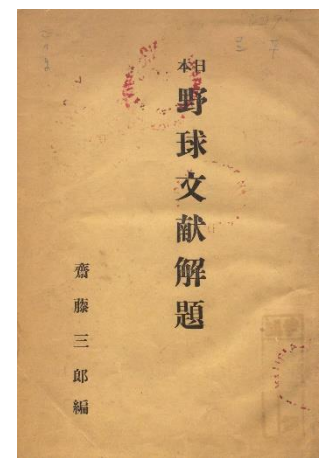 日本
野球文献解題
齋藤三郎編